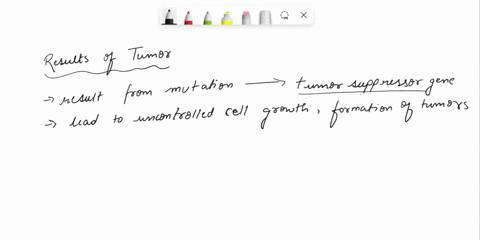 Results of Tumor
→ result from mutation → tumor suppressor gene
→ lead to uncontrolled cell growth, formation of tumors